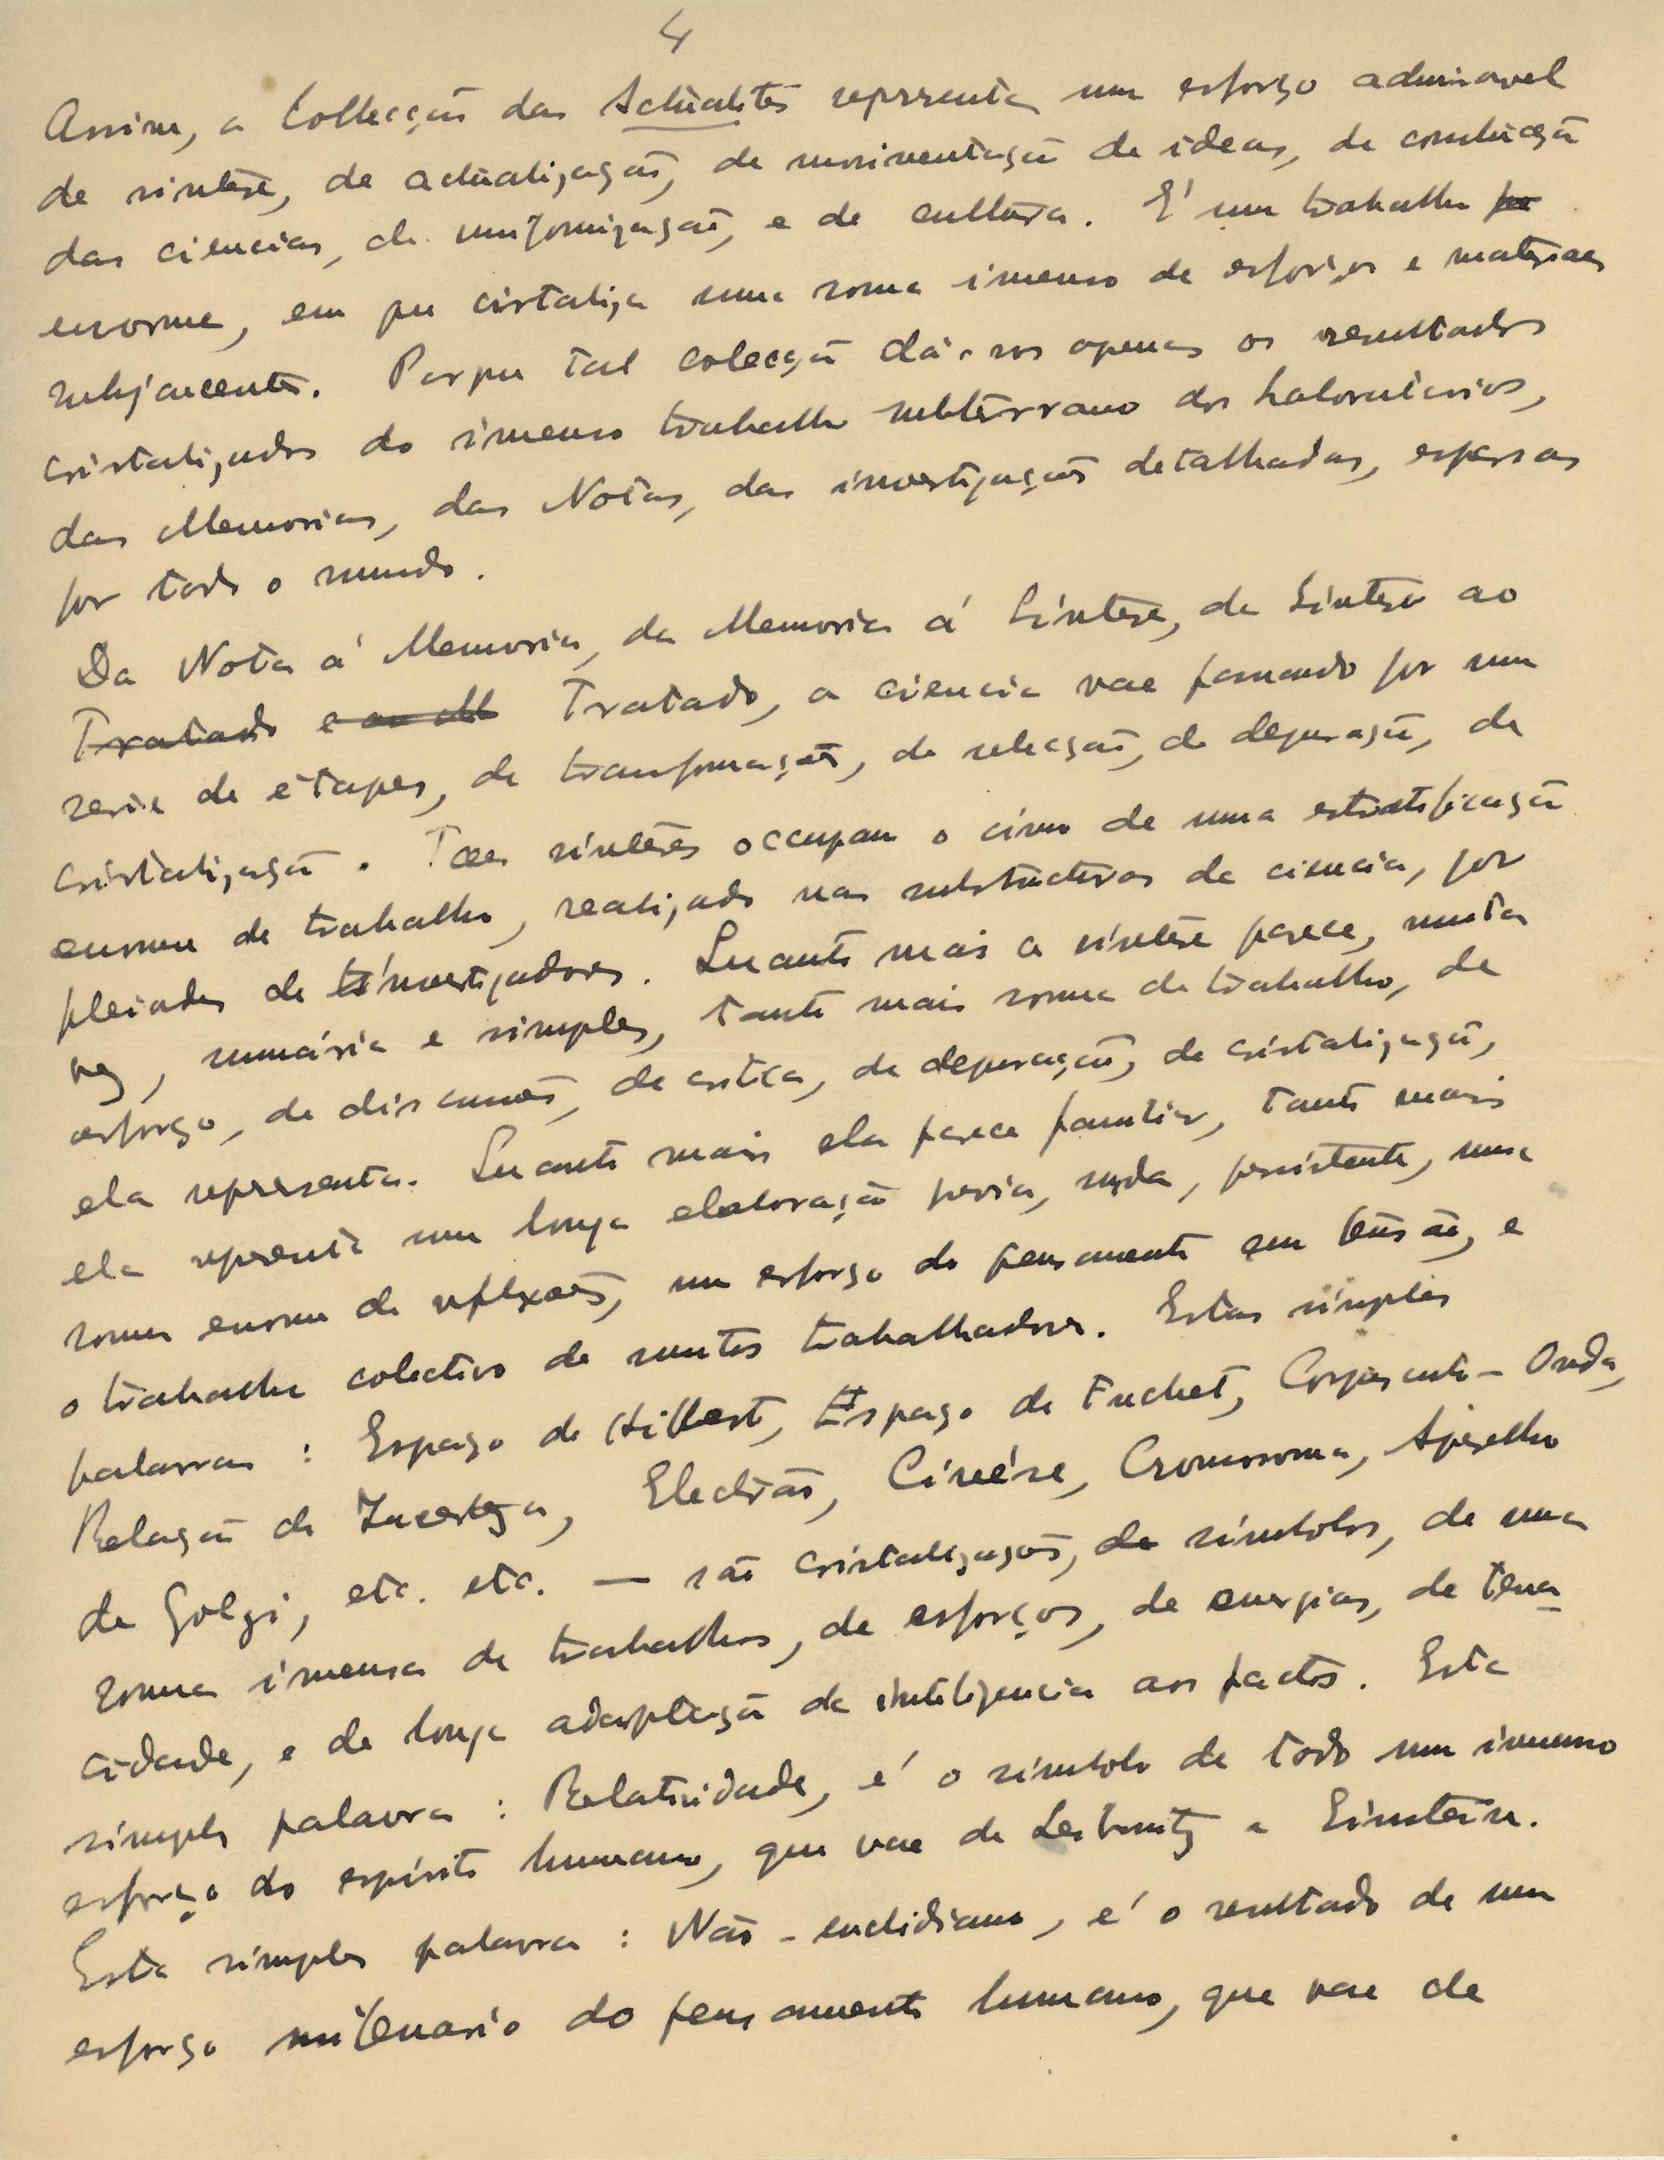 4
Assim, a Collecção das Actualités representa um esforço admiravel
de sintese, de actualização, de movimentação de ideas, de conducção
das ciencias, de uniformização, e de cultura. E' um trabalho
enorme, em que cristaliza uma soma imensa de esforços e materiaes
subjacentes. Porque tal colecção dá-nos apenas os resultados
cristalizados do imenso trabalho subterraneo dos Laboratorios,
das Memorias, das Notas, das investigações detalhadas, esparsas
por todo o mundo.
Da Nota á Memoria, da Memoria á Síntese, da Síntese ao
Tratado e ao Tratado, a ciencia vae passando por uma
serie de étapes, de transformação, de selecção, de depuração, de
cristalização. Taes sínteses occupam o cimo de uma estratificação
enorme de trabalho, realizado nas substructuras da ciencia, por
pleiades de investigadores. Quanto mais a síntese parece, muita
vez, sumária e simples, tanto mais soma de trabalho, de
esforço, de discussões, de critica, de depuração, de cristalização,
ela representa. Quanto mais ela parece familiar, tanto mais
ela representa uma longa elaboração previa, persistente, uma
soma enorme de reflexões, um esforço do pensamento em tensão, e
o trabalho colectivo de muitos trabalhadores. Estas simples
palavras: Espaço de Hilbert, Espaço de Fréchet, Corpusculo-Onda,
Relação de Incerteza, Electrão, Cinése, Cromosoma, Aparelho
de Golgi, etc. etc. — são cristalizações, de símbolos, de uma
soma imensa de trabalhos, de esforços, de energias, de tena-
cidade, e de longa adaptação da inteligencia aos factos. Esta
simples palavra: Relatividade, é o símbolo de todo um imenso
esforço do espirito humano, que vae de Leibnitz a Einstein.
Esta simples palavra: Não-euclidiano, é o resultado de um
esforço milenario do pensamento humano, que vae de